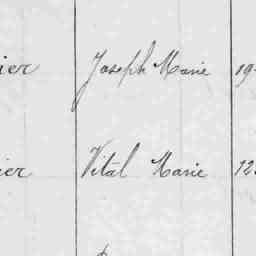 ier Joseph Marie 19
ier Vital Marie 12